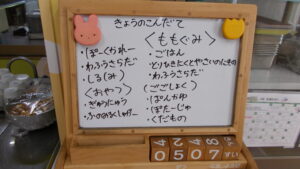 きょうのこんだて
・ぽーくかれー
・わふうさらだ
・しる(みそ)
〈おやつ〉
・ぎゅうにゅう
・ふのみるくしゅがー
〈ももぐみ〉
・ごはん
・とりにくとやさいのにもの
・わふうさらだ
(ごごしょく)
・ぱんかゆ
・ぽたーじゅ
・くだもの
0507